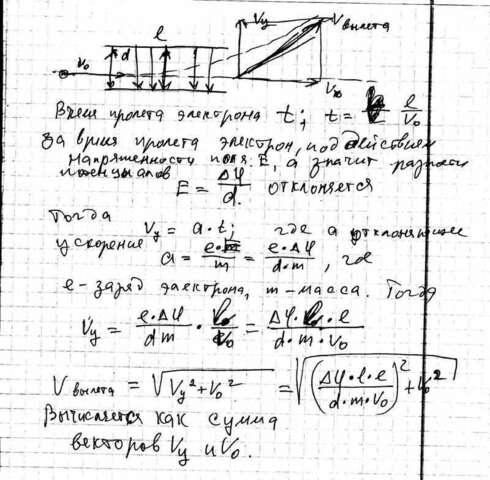 l
V₀ d Vy V вылета
Vx
Время пролета электрона t; t = l/V₀
За время пролета электрон, под действием
напряженности поля E, а значит разности
потенциалов E = Δφ/d. отклоняется
Тогда
Vy = a·t; где a отклоняющее
ускорение a = e·E/m = e·Δφ/d·m, где
e - заряд электрона, m - масса. Тогда
Vy = e·Δφ/dm · l/V₀ = Δφ·l·e/d·m·V₀
V вылета = √(Vy² + V₀²) = √((Δφ·l·e/d·m·V₀)² + V₀²)
Вычисляется как сумма
векторов Vy и V₀.